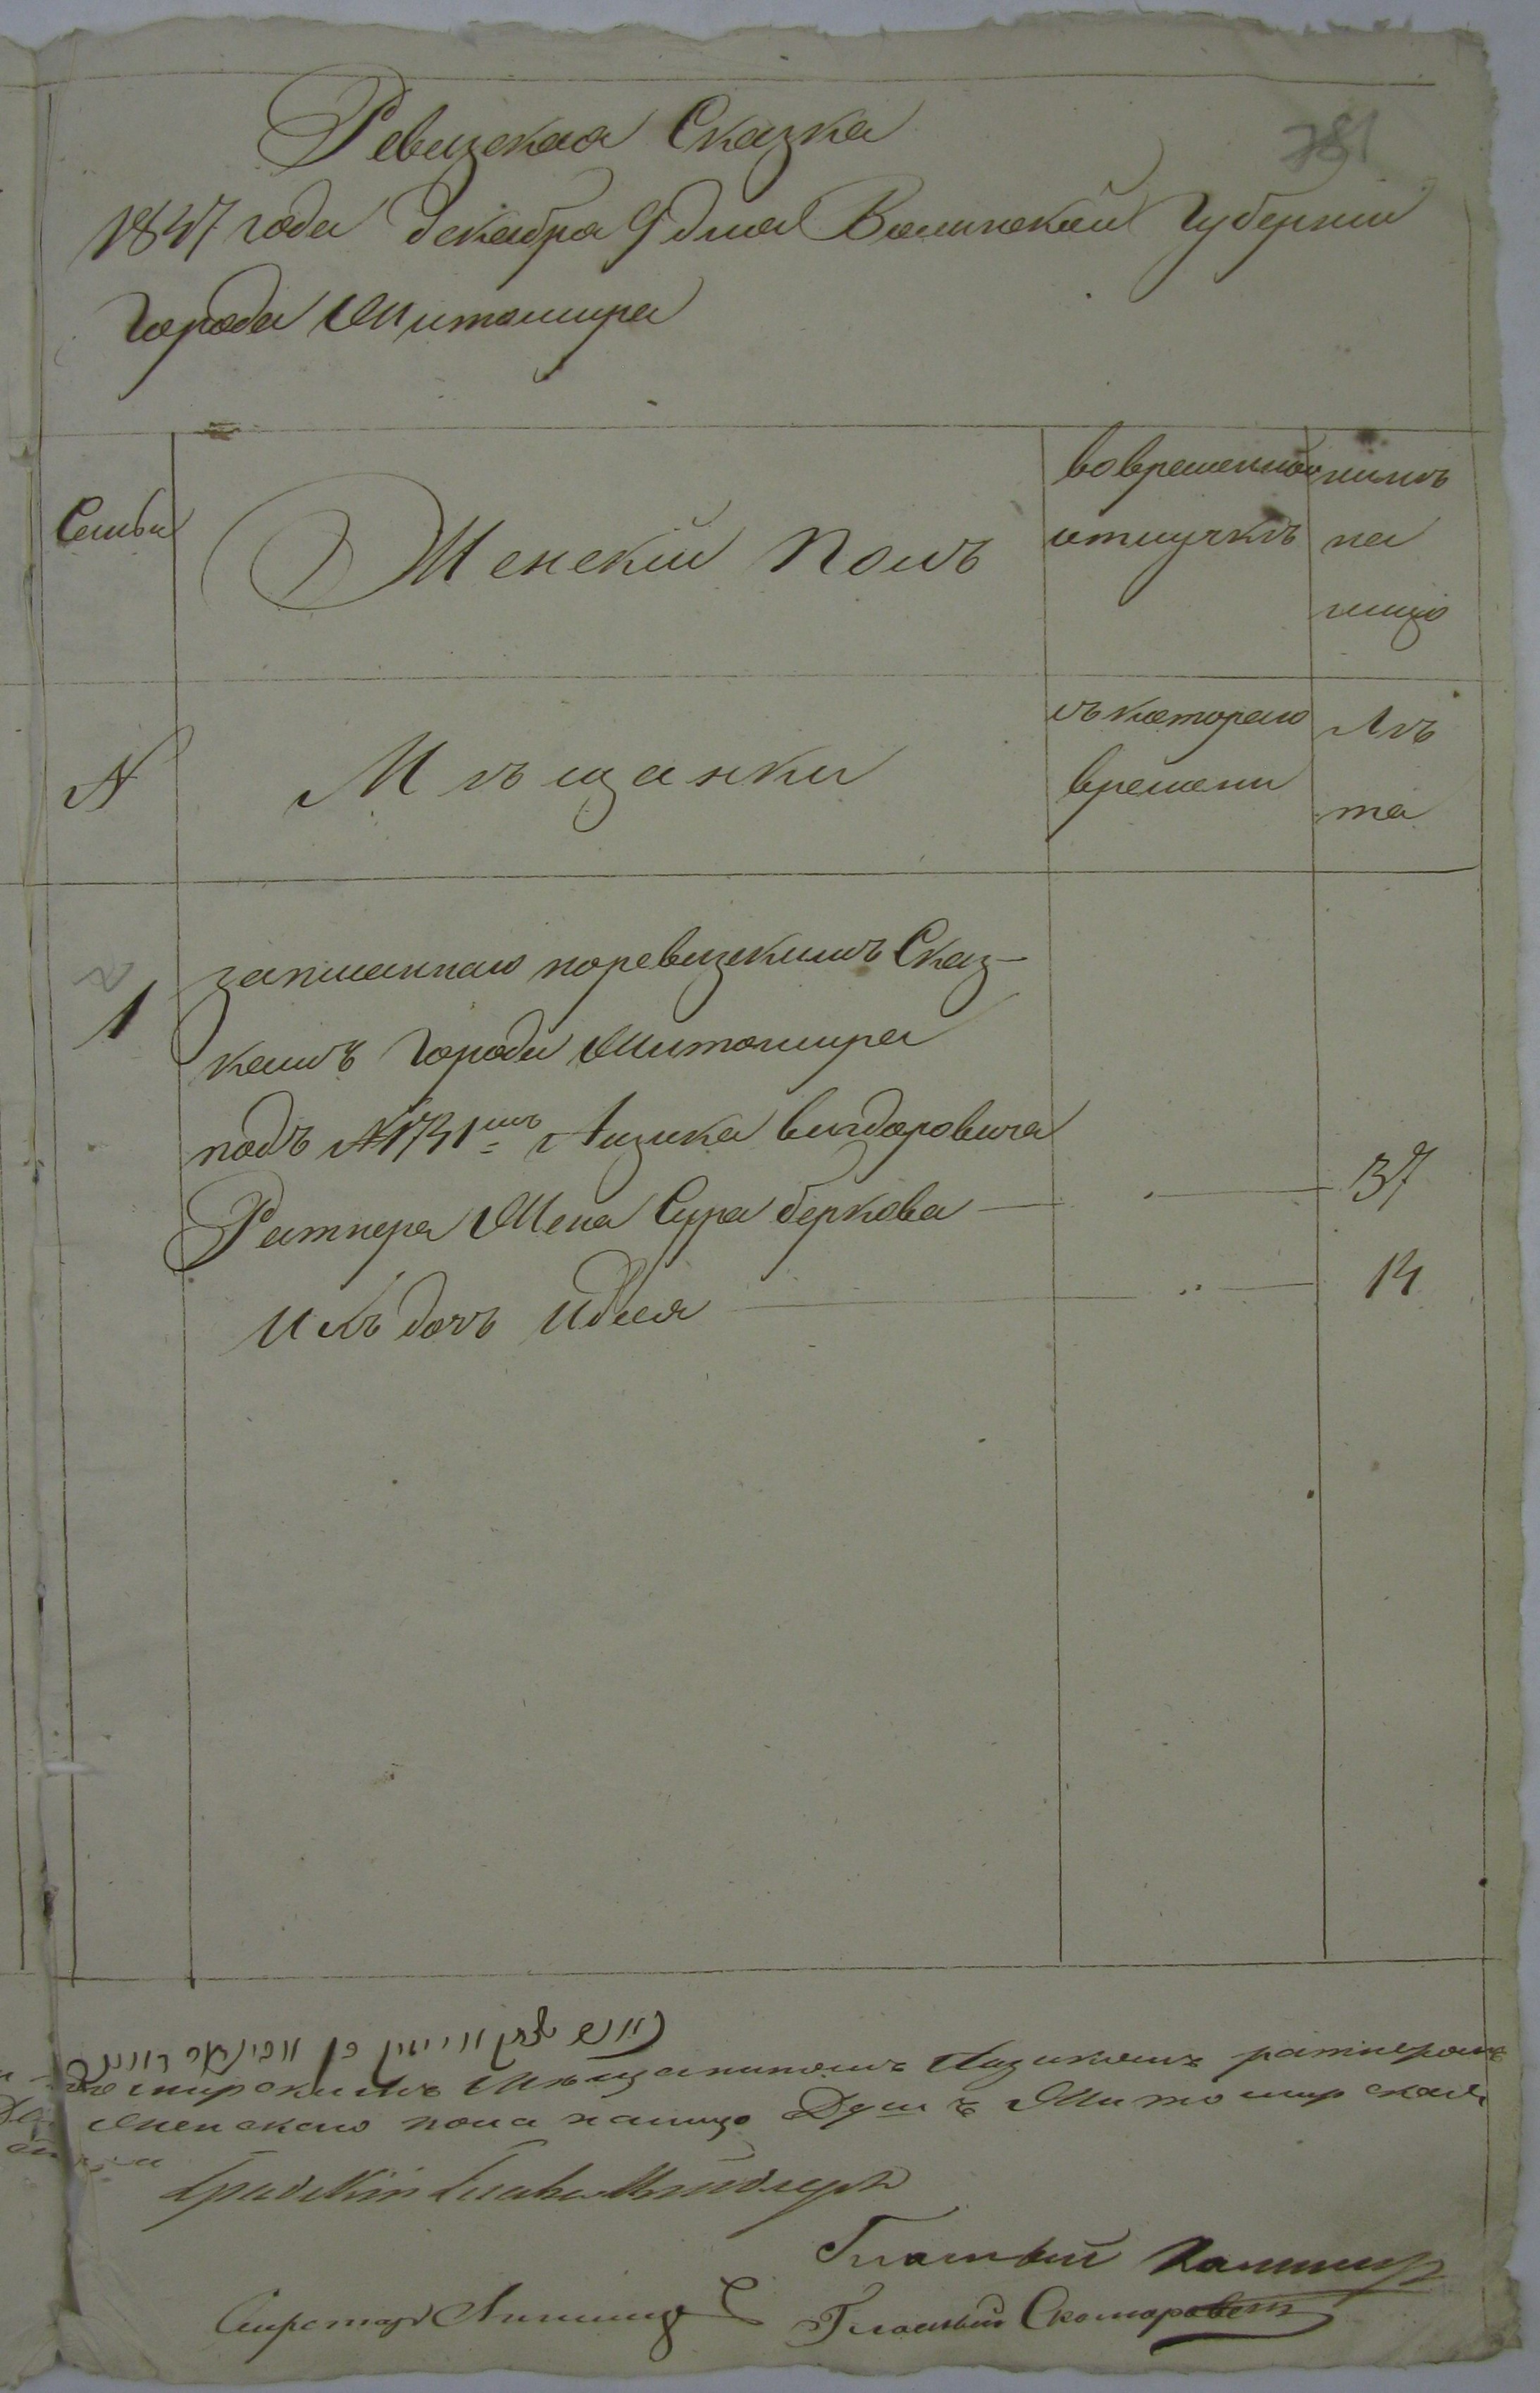 Ревизская Сказка
781
1847 года декабря 9 дня Волынской Губернии
Города Житомира
Семьи
Женскій Полъ
во временной
отлучкѣ
нынѣ
на
лицо
N
Мѣщанки
съ котораго
времени
Лѣ
та
1
записаннаго по ревизскимъ Сказ-
камъ Города Житомира
подъ N 1731мъ Аизика Вигдоровича
Ратнера Жена Сура Беркова 37
Ихъ дочь Идися 14
Мѣщаниномъ Аизикомъ ратнеромъ
Женскаго пола налицо Душъ Житомирская
Градскій Глава
Гласный
Секретарь
Гласный Скоморовскій